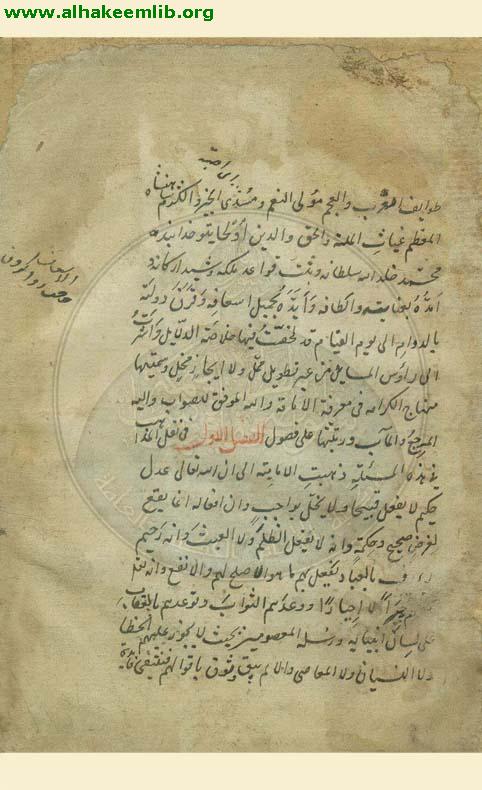 www.alhakeemlib.org
طوايف العرب والعجم مولى النعم ومسدى الخير والكرم شاهنشاه
المعظم غياث الملة والحق والدين اولجايتو خدابنده
محمد خلد الله سلطانه وثبت قواعد ملكه وشيد اركانه و
امده بعنايته والطافه وأيده بجميل اسعافه وقرن دولته
بالدوام الى يوم القيام قد لخصت فيها خلاصة الدلايل واشرت
الى رؤس المسايل من غير تطويل ممل ولا ايجاز مخل وسميتها
منهاج الكرامه في معرفة الامامة والله الموفق للصواب واليه
المرجع والمآب ورتبتها على فصول الفصل الاول في نقل المذاهب
في هذه المسئلة ذهبت الامامية الى ان الله تعالى عدل
حكيم لا يفعل قبيحا ولا يخل بواجب وان افعاله انما يقع
لغرض صحيح وحكمة وانه لا يفعل الظلم ولا العبث وانه رحيم
بالعباد يفعل بهم ما هو الاصلح لهم والانفع وانه تعالى
لا اجبارا ووعدهم الثواب وتوعدهم بالعقاب
على لسان انبيائه ورسله المعصومين بحيث لا يجوز عليهم الخطأ
ولا النسيان ولا المعاصى والا لم يبق وثوق باقوالهم فتنتفى فايدة